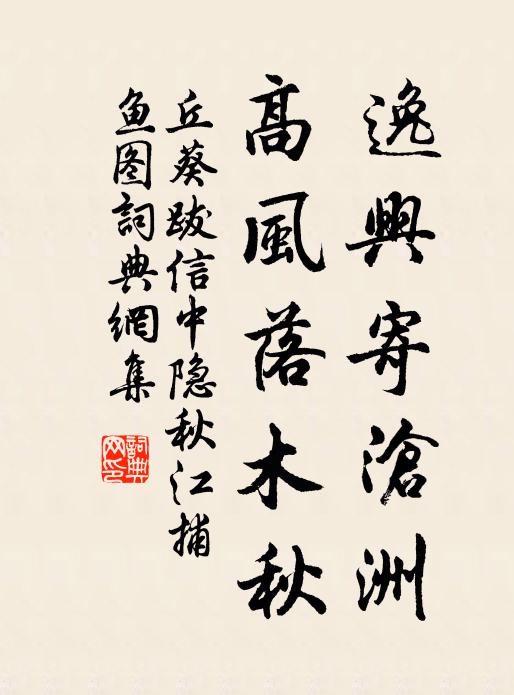 逸興寄滄洲
高風落木秋
丘葵跋信中隐秋江捕
鱼图詞典網集
詞典
网印